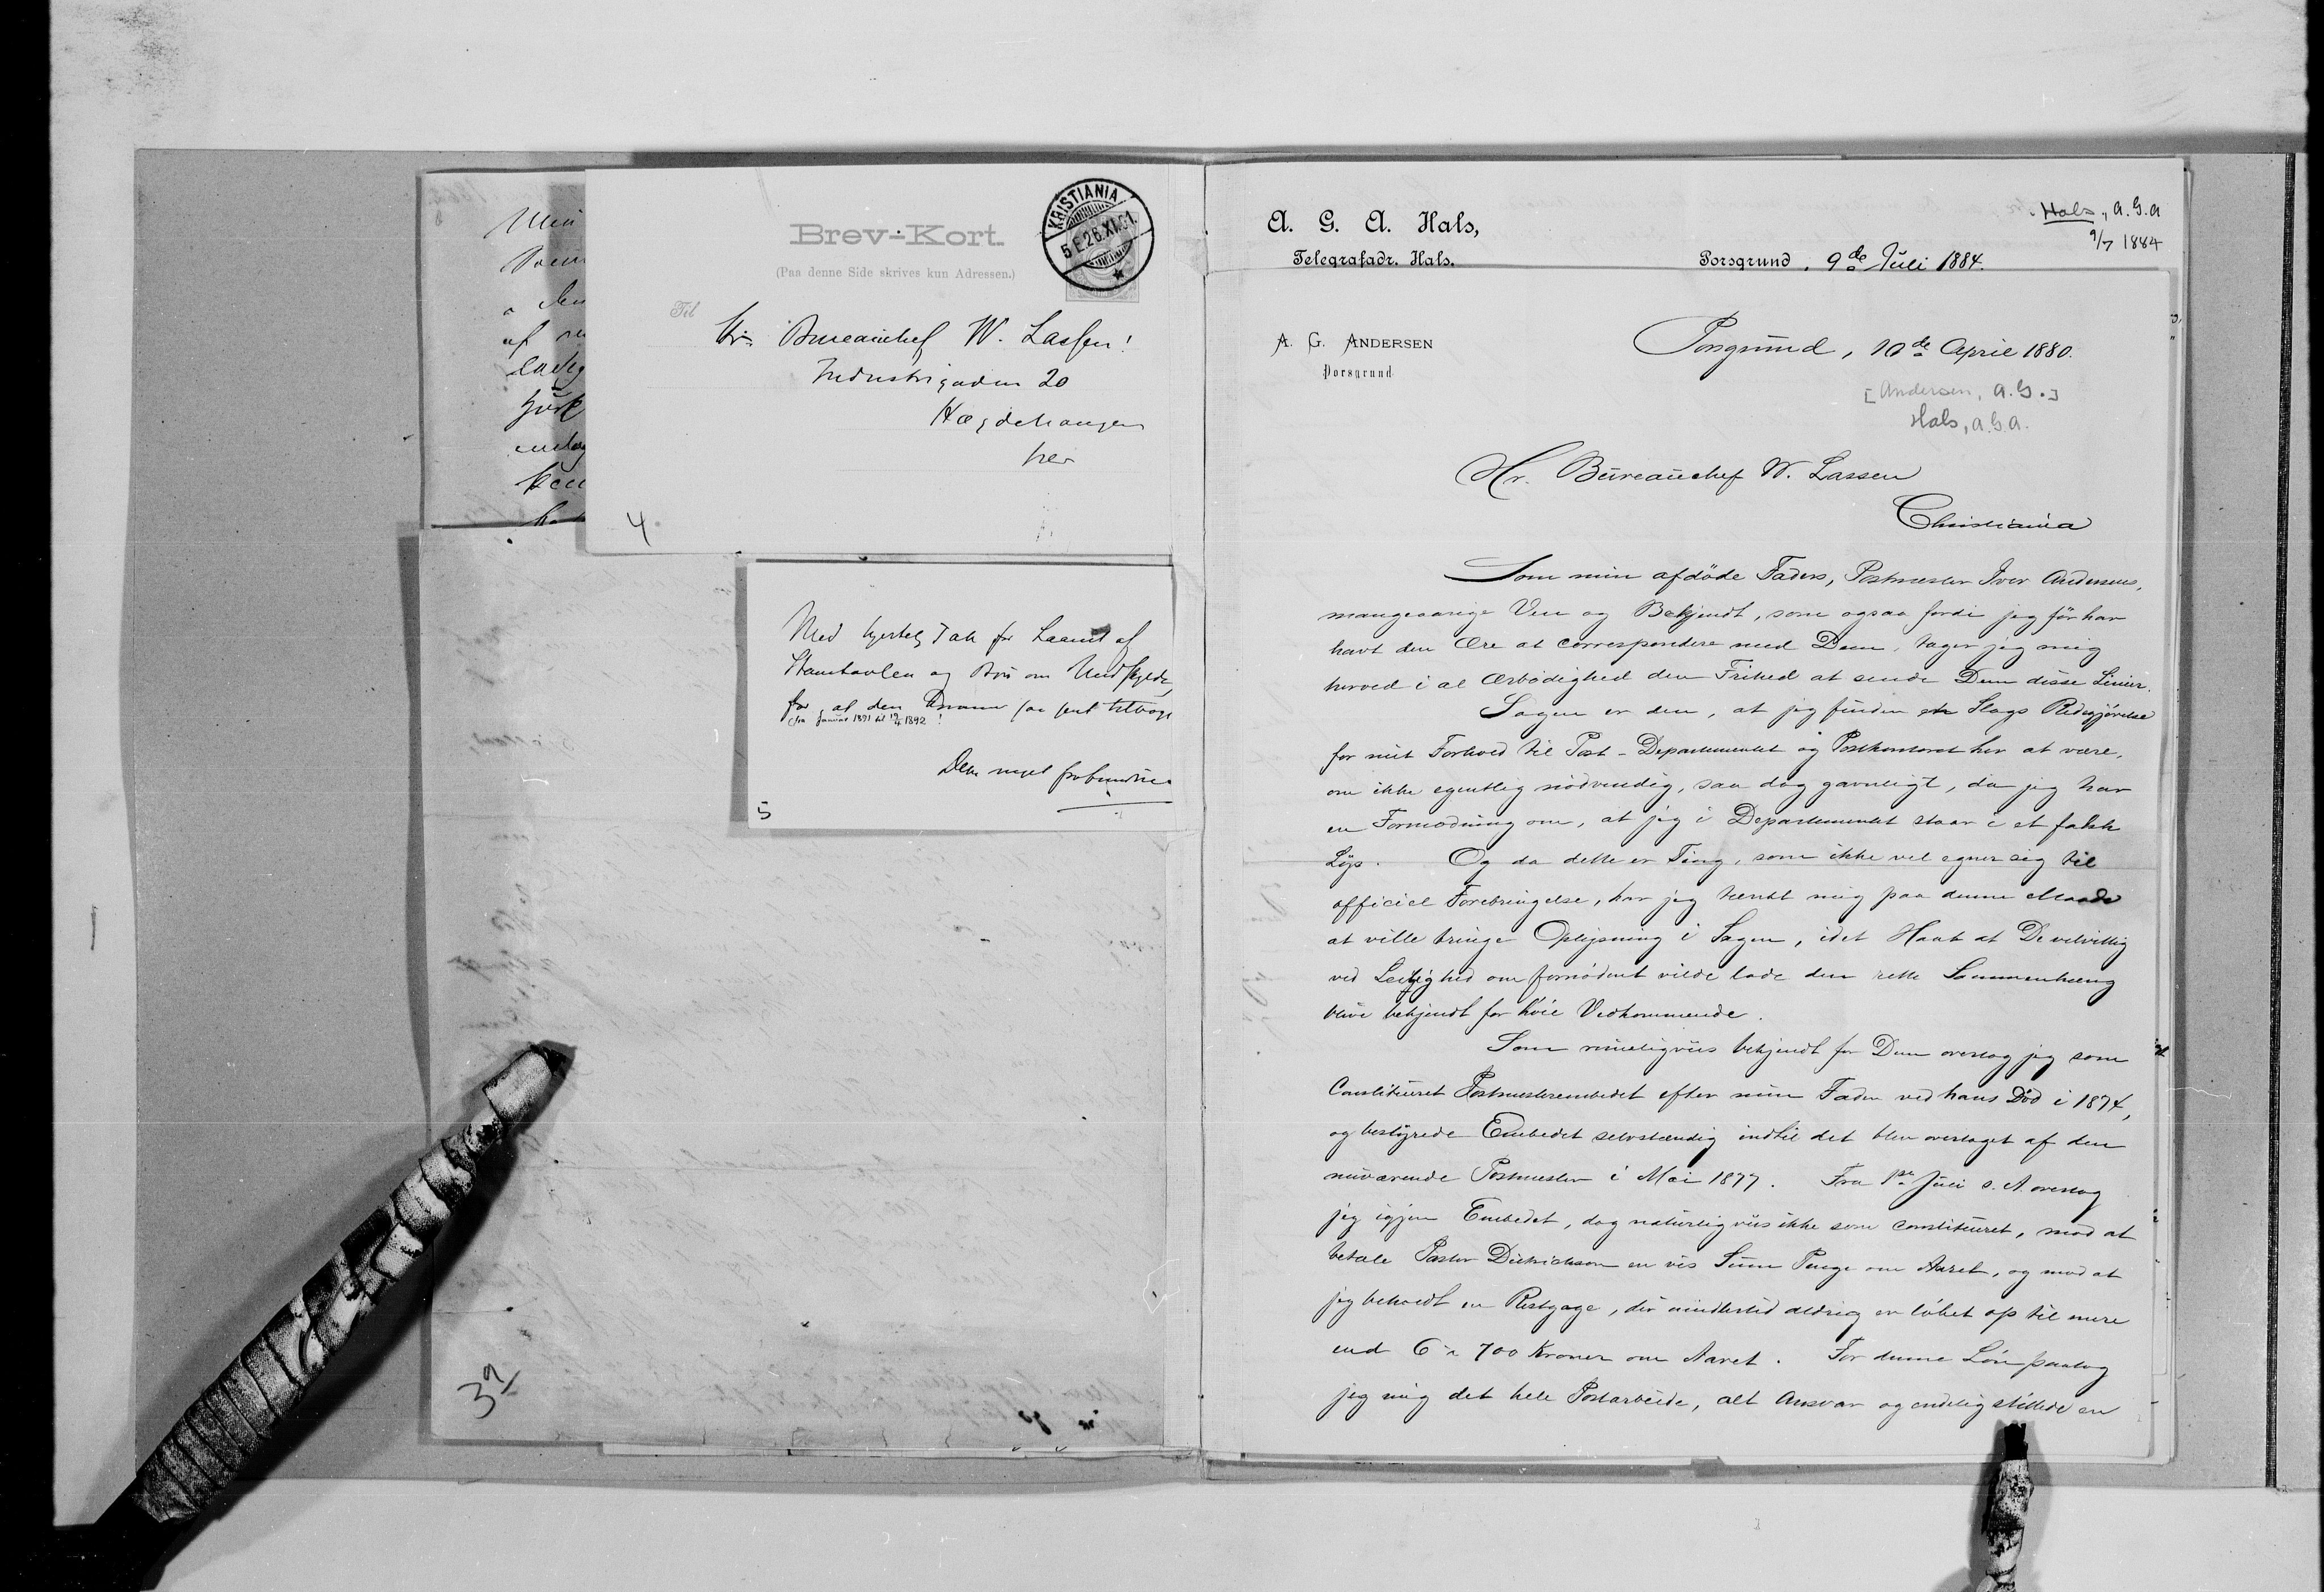 Min
af
Brev-Kort.
(Paa denne Side skrives kun Adressen.)
KRISTIANIA
5 E 26 XI 91.
Til
Hr. Bureauchef W. Lassen!
Industrigaden 20
Hægdehaugen
her
4
Med hjertelig Tak for Laanet af
Stamtavlen og Bøn om Undskyld
for, at den kommer saa sent tilbage
fra Januar 1891 til 1892!
Deres meget forbundne
5
3
A. G. A. Hals,
Telegrafadr. Hals.
Porsgrund, 9de Juli 1884.
Hals, A. G. A
9/7 1884
A. G. ANDERSEN
Porsgrund
Porsgrund, 10de April 1880.
[Andersen, A. G.]
Hals, A. G. A.
Hr. Bureauchef W. Lassen
Christiania
Som min afdöde Faders, Postmester Iver Andersens,
mangeaarige Ven og Bekjendt, som ogsaa fordi jeg för har
havt den Ære at correspondere med Dem, tager jeg mig
herved i al Ærbödighed den Frihed at sende Dem disse Linier.
Sagen er den, at jeg finder en Slags Redegjörelse
for mit Forhold til Post-Departementet og Postkontoret her at være,
om ikke egentlig nödvendig, saa dog gavnligt, da jeg har
en Formodning om, at jeg i Departementet staar i et falsk
Lys. Og da dette er Ting, som ikke vel egner sig til
officiel Forebringelse, har jeg tænkt mig paa denne Maade
at ville bringe Oplysning i Sagen, idet Haab at De velvillig
ved Leilighed om fornödent vilde lade den rette Sammenhæng
blive bekjendt for höie Vedkommende.
Som rimeligviis bekjendt for Dem overtog jeg som
Constitueret Postmesterembedet efter min Fader ved hans Död i 1874,
og bestyrede Embedet selvstændig indtil det blev overtaget af den
nuværende Postmester i Mai 1877. Fra 1ste Juli s. A. overtog
jeg igjen Embedet, dog naturligviis ikke som constitueret, mod at
betale Pastor Dietrichson en vis Sum Penge om Aaret, og mod at
jeg beholdt en Restgage, der imidlertid aldrig er löbet op til mere
end 6 à 700 Kroner om Aaret. For denne Lön paatog
jeg mig det hele Postarbeide, alt Ansvar og endelig stillede en